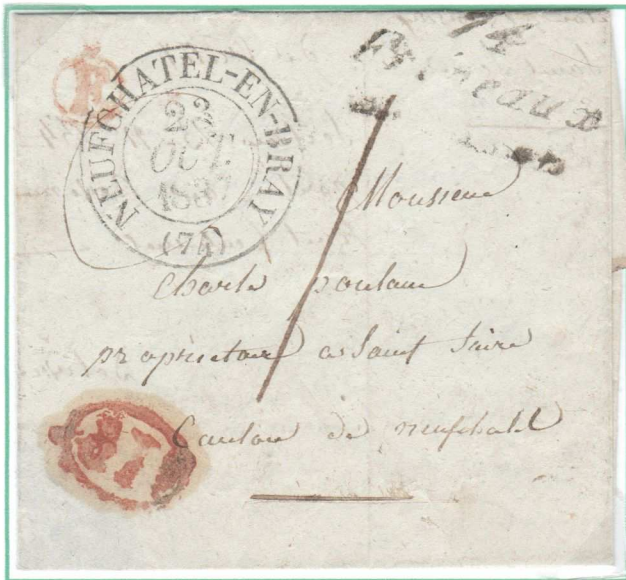 74
NEUFCHATEL-EN-BRAY
23
OCT.
1837
(74)
Monsieur
Charle poulain
propriétaire a Saint Saire
Canton de neufchatel